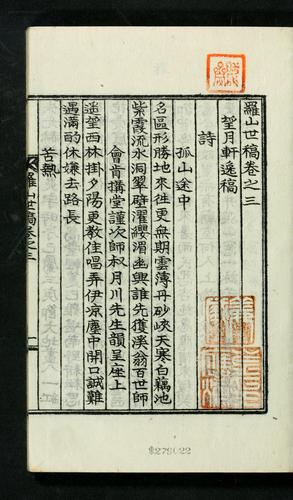 羅山世稿卷之三
望月軒逸稿
詩
孤山途中
名區形勝地來往更無期雲薄丹砂峽天寒白鷗池
紫霞流水洞翠壁濯纓湄幽興誰先獲溪翁百世師
會肯搆堂謹次師叔月川先生韻呈座上
遥望西林掛夕陽更教佳唱弄伊凉塵中開口誠難
遇滿酌休嫌去路長
苦熱
羅山世稿卷之三
一
279022